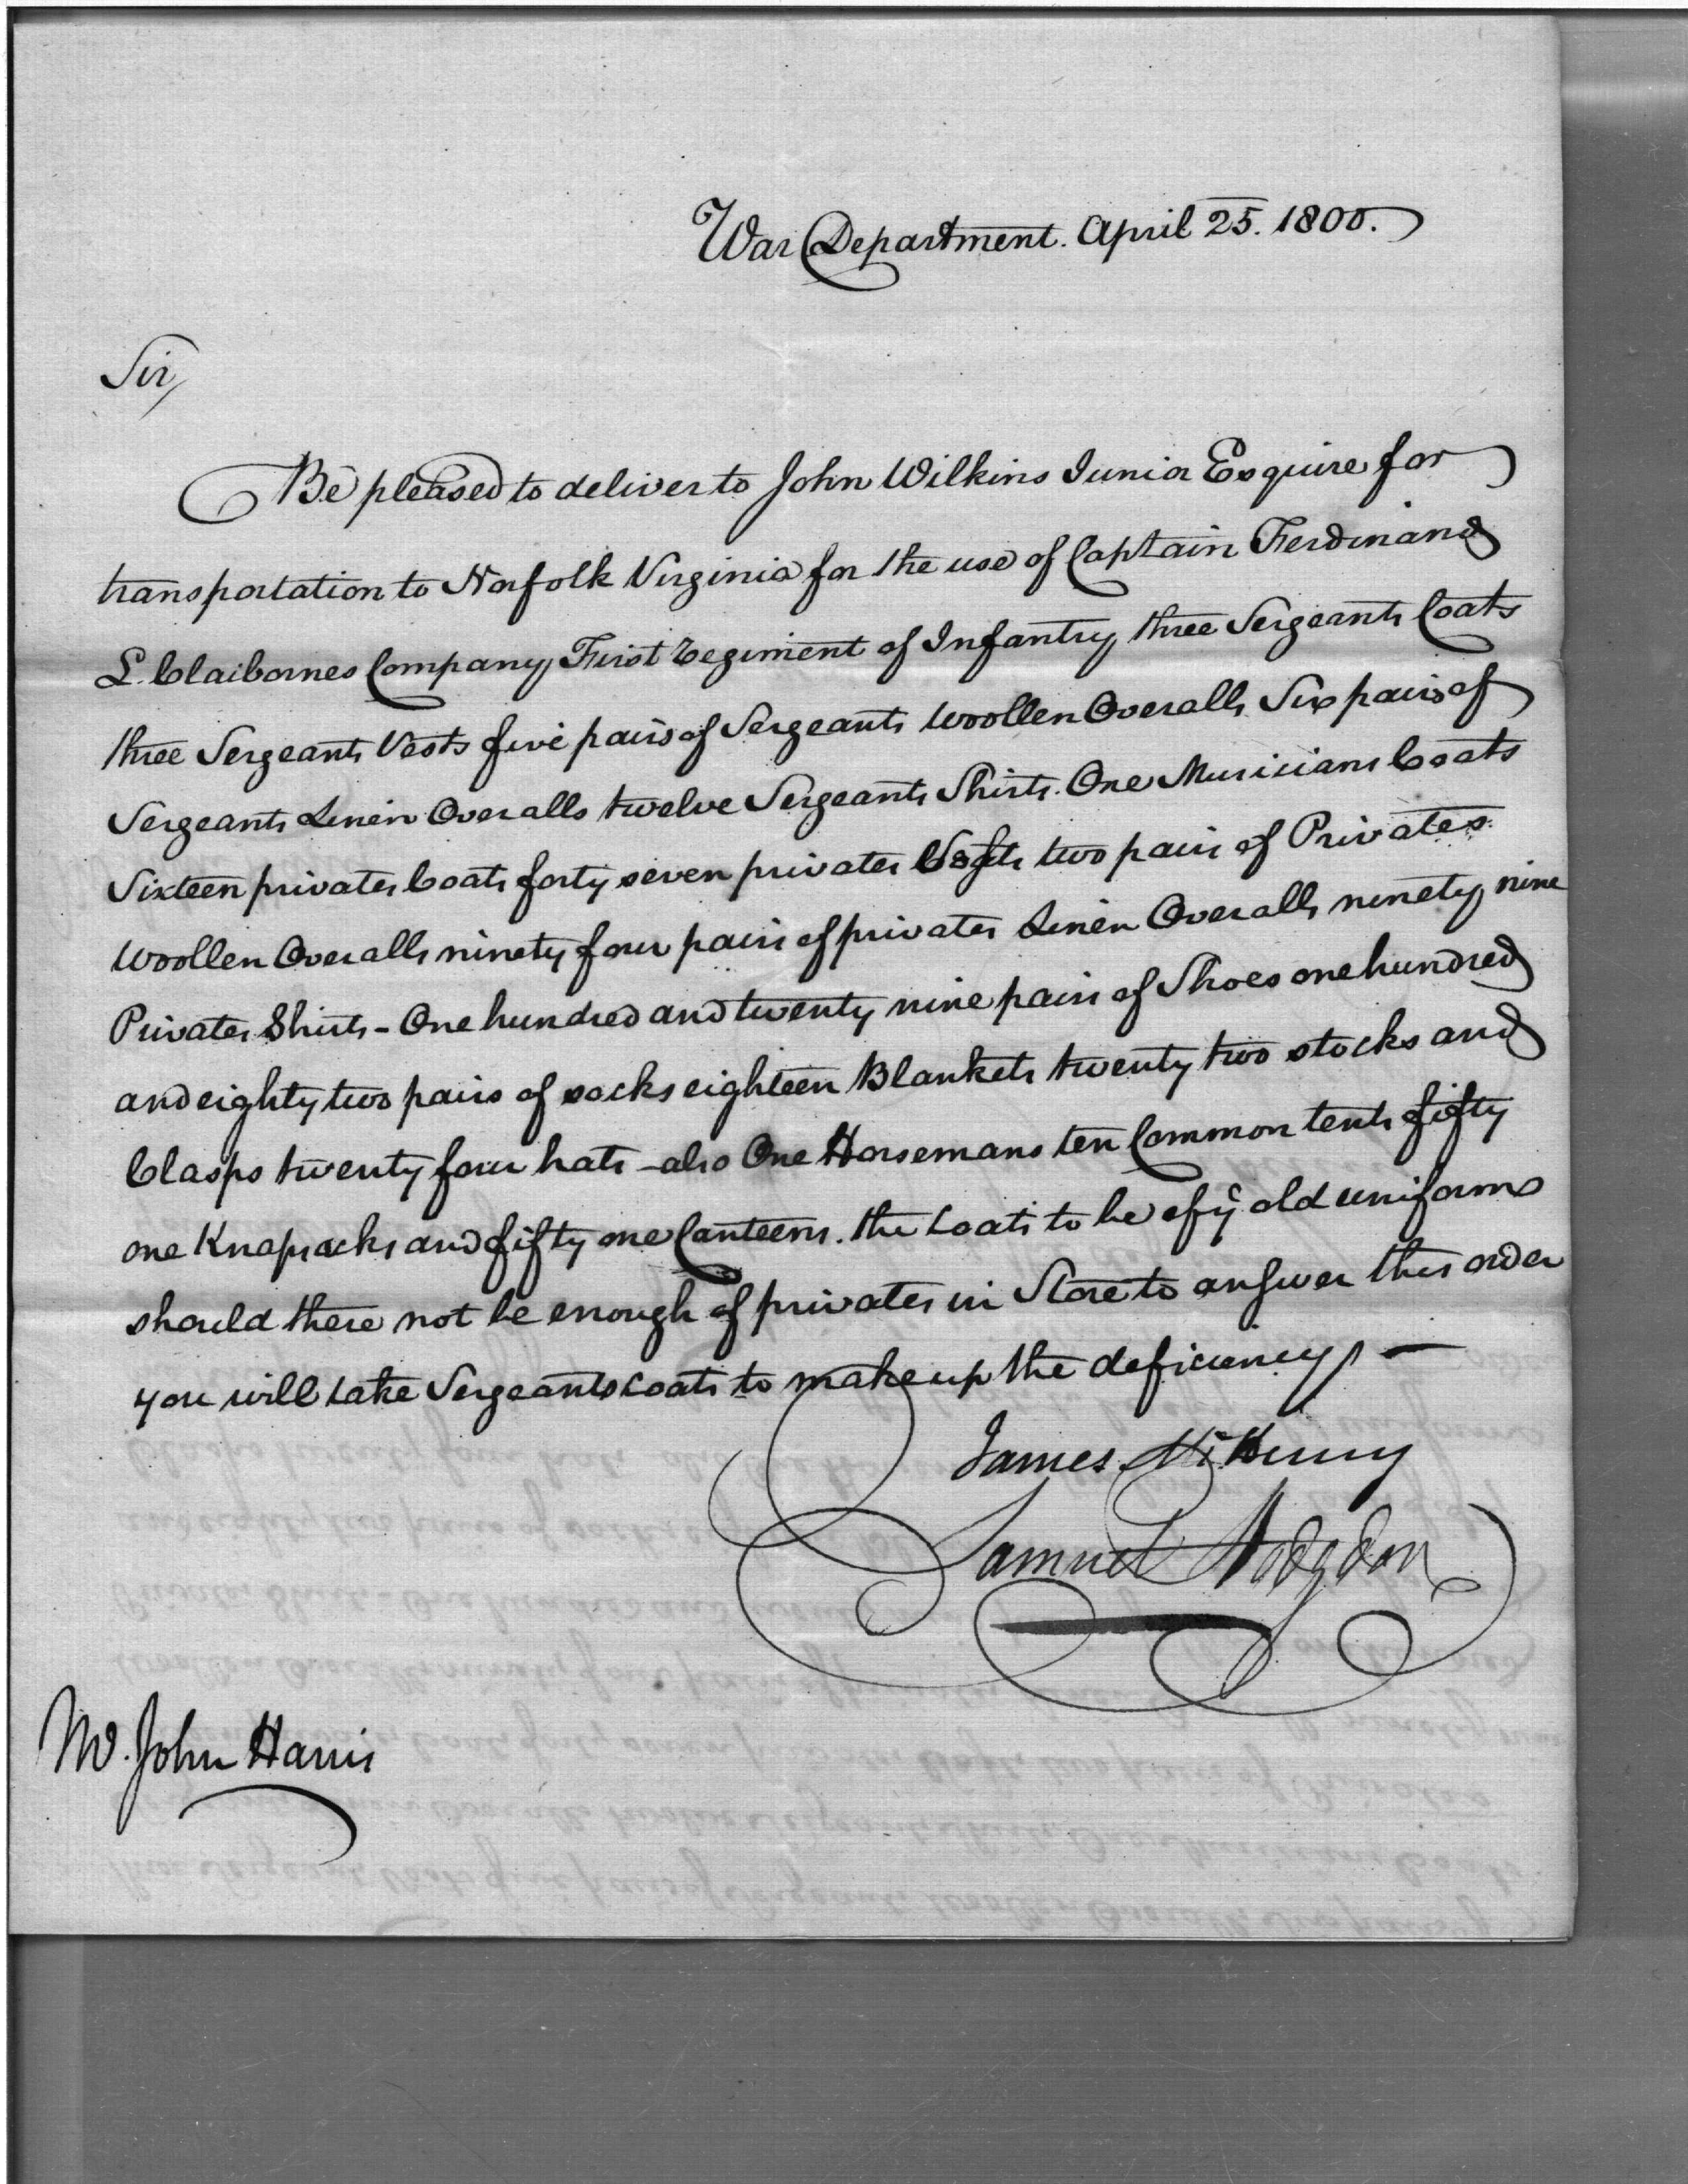 War Department. April 25. 1800.
Sir,
Be pleased to deliver to John Wilkins Junior Esquire for
transportation to Norfolk Virginia for the use of Captain Ferdinand
L. Claibornes Company, First Regiment of Infantry, three Sergeants Coats
three Sergeants Vests five pairs of Sergeants Woollen Overalls Six pairs of
Sergeants Linen Overalls twelve Sergeants Shirts. One Musicians Coats
Sixteen privates Coats forty seven privates Vests two pairs of Privates
Woollen Overalls ninety four pairs of privates Linen Overalls ninety nine
Privates Shirts - One hundred and twenty nine pairs of Shoes one hundred
and eighty two pairs of socks eighteen Blankets twenty two stocks and
Clasps twenty four hats - also One Horsemans ten Common tents fifty
one Knapsacks and fifty one Canteens. the Coats to be of ye old uniforms
should there not be enough of privates in Store to answer this order
you will take Sergeants coats to make up the deficiency, —
James McHenry
Samuel Hodgdon
Mr. John Harris